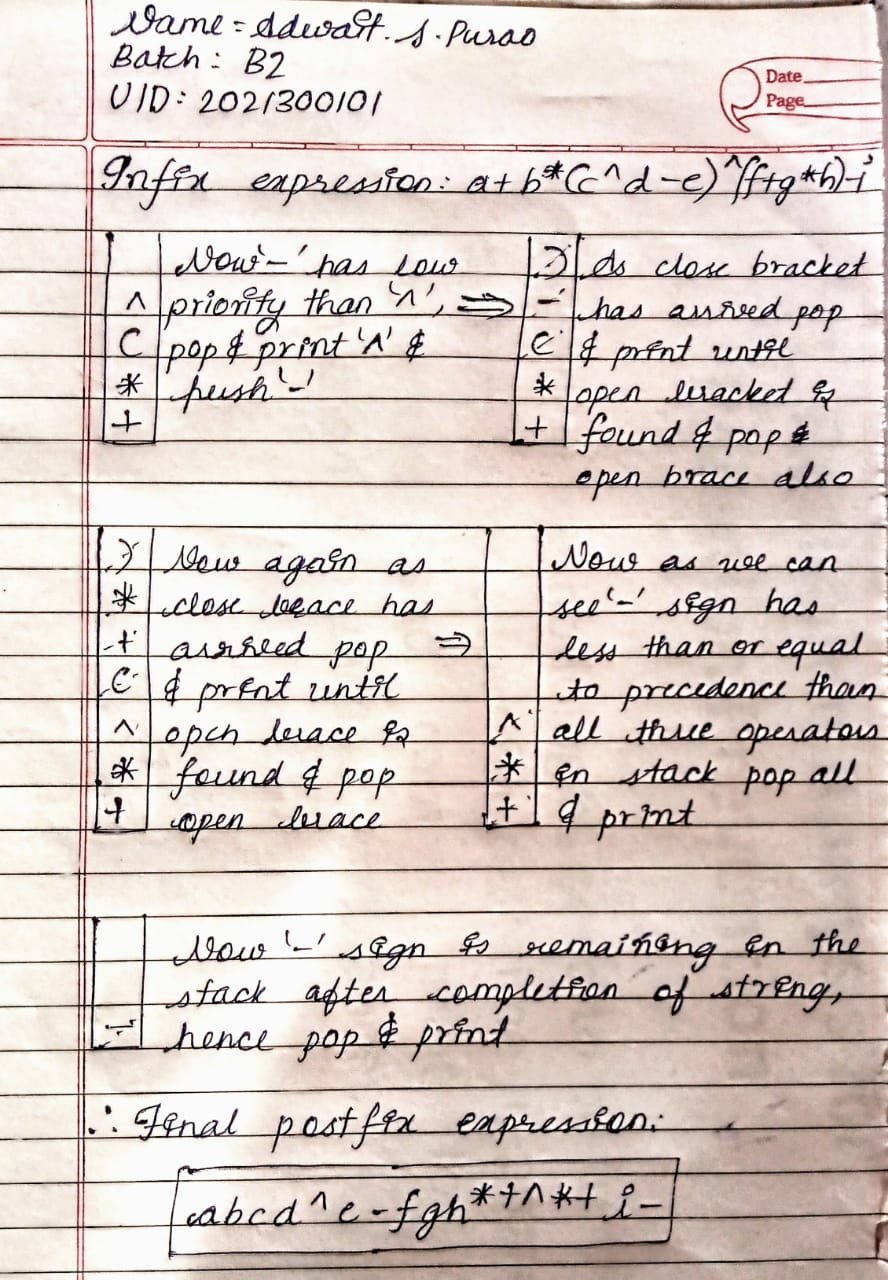 Name = Adwait. S. Purao
Batch : B2
UID: 2021300101
Date
Page
Infix expression: a+b*(c^d-e)^(f+g*h)-i
^
(
*
+
Now '-' has low
priority than '^', ⇒
pop & print '^' &
push '-'
)
-
(
*
+
As close bracket
has arrived pop
& print until
open bracket is
found & pop &
open brace also
)
*
+
(
^
*
+
Now again as
close brace has
arrived pop ⇒
& print until
open brace is
found & pop
open brace
^
*
+
Now as we can
see '-' sign has
less than or equal
to precedence than
all three operators
in stack pop all
& print
-
Now '-' sign is remaining in the
stack after completion of string,
hence pop & print
∴ Final postfix expression:
abcd^e-fgh*+^*+i-